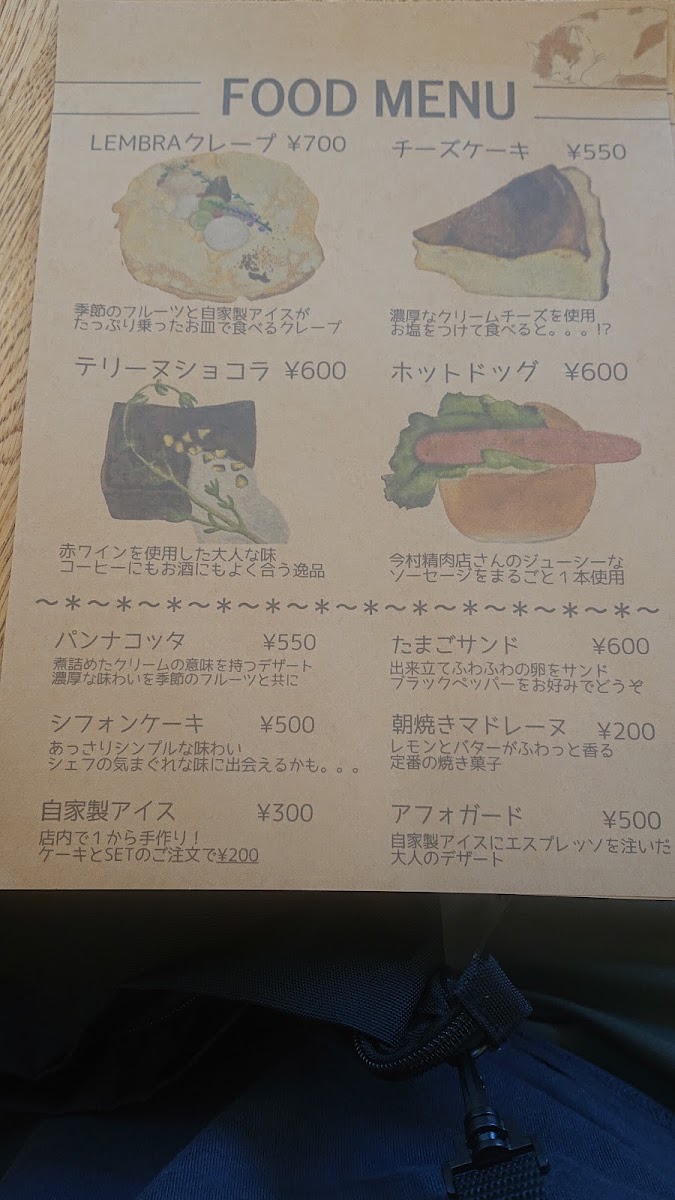 FOOD MENU
LEMBRAクレープ ¥700
季節のフルーツと自家製アイスが
たっぷり乗ったお皿で食べるクレープ
チーズケーキ ¥550
濃厚なクリームチーズを使用
お塩をつけて食べると。。。!?
テリーヌショコラ ¥600
赤ワインを使用した大人な味
コーヒーにもお酒にもよく合う逸品
ホットドッグ ¥600
今村精肉店さんのジューシーな
ソーセージをまるごと1本使用
～＊～＊～＊～＊～＊～＊～＊～＊～＊～＊～＊～＊～
パンナコッタ ¥550
煮詰めたクリームの意味を持つデザート
濃厚な味わいを季節のフルーツと共に
たまごサンド ¥600
出来立てふわふわの卵をサンド
ブラックペッパーをお好みでどうぞ
シフォンケーキ ¥500
あっさりシンプルな味わい
シェフの気まぐれな味に出会えるかも。。。
朝焼きマドレーヌ ¥200
レモンとバターがふわっと香る
定番の焼き菓子
自家製アイス ¥300
店内で1から手作り!
ケーキとSETのご注文で¥200
アフォガード ¥500
自家製アイスにエスプレッソを注いだ
大人のデザート